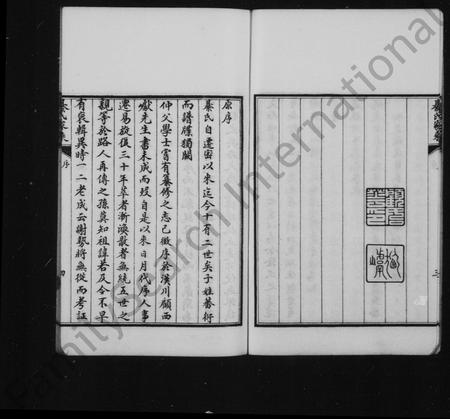 原序
綦氏自遷密以來迄今十有二世矣子姓蕃衍
而譜牒獨闕
仲父學士嘗有纂修之志已徵序於潢川顧西
巘先生書未成而歿自是以來日月代序人事
遷易旋復三十年萃者漸渙散者無統五世之
親等於路人再傳之孫莫知祖諱若及今不早
有裒輯異時一二老成云謝勢將無從而考証
序
四
三
FamilySearch International